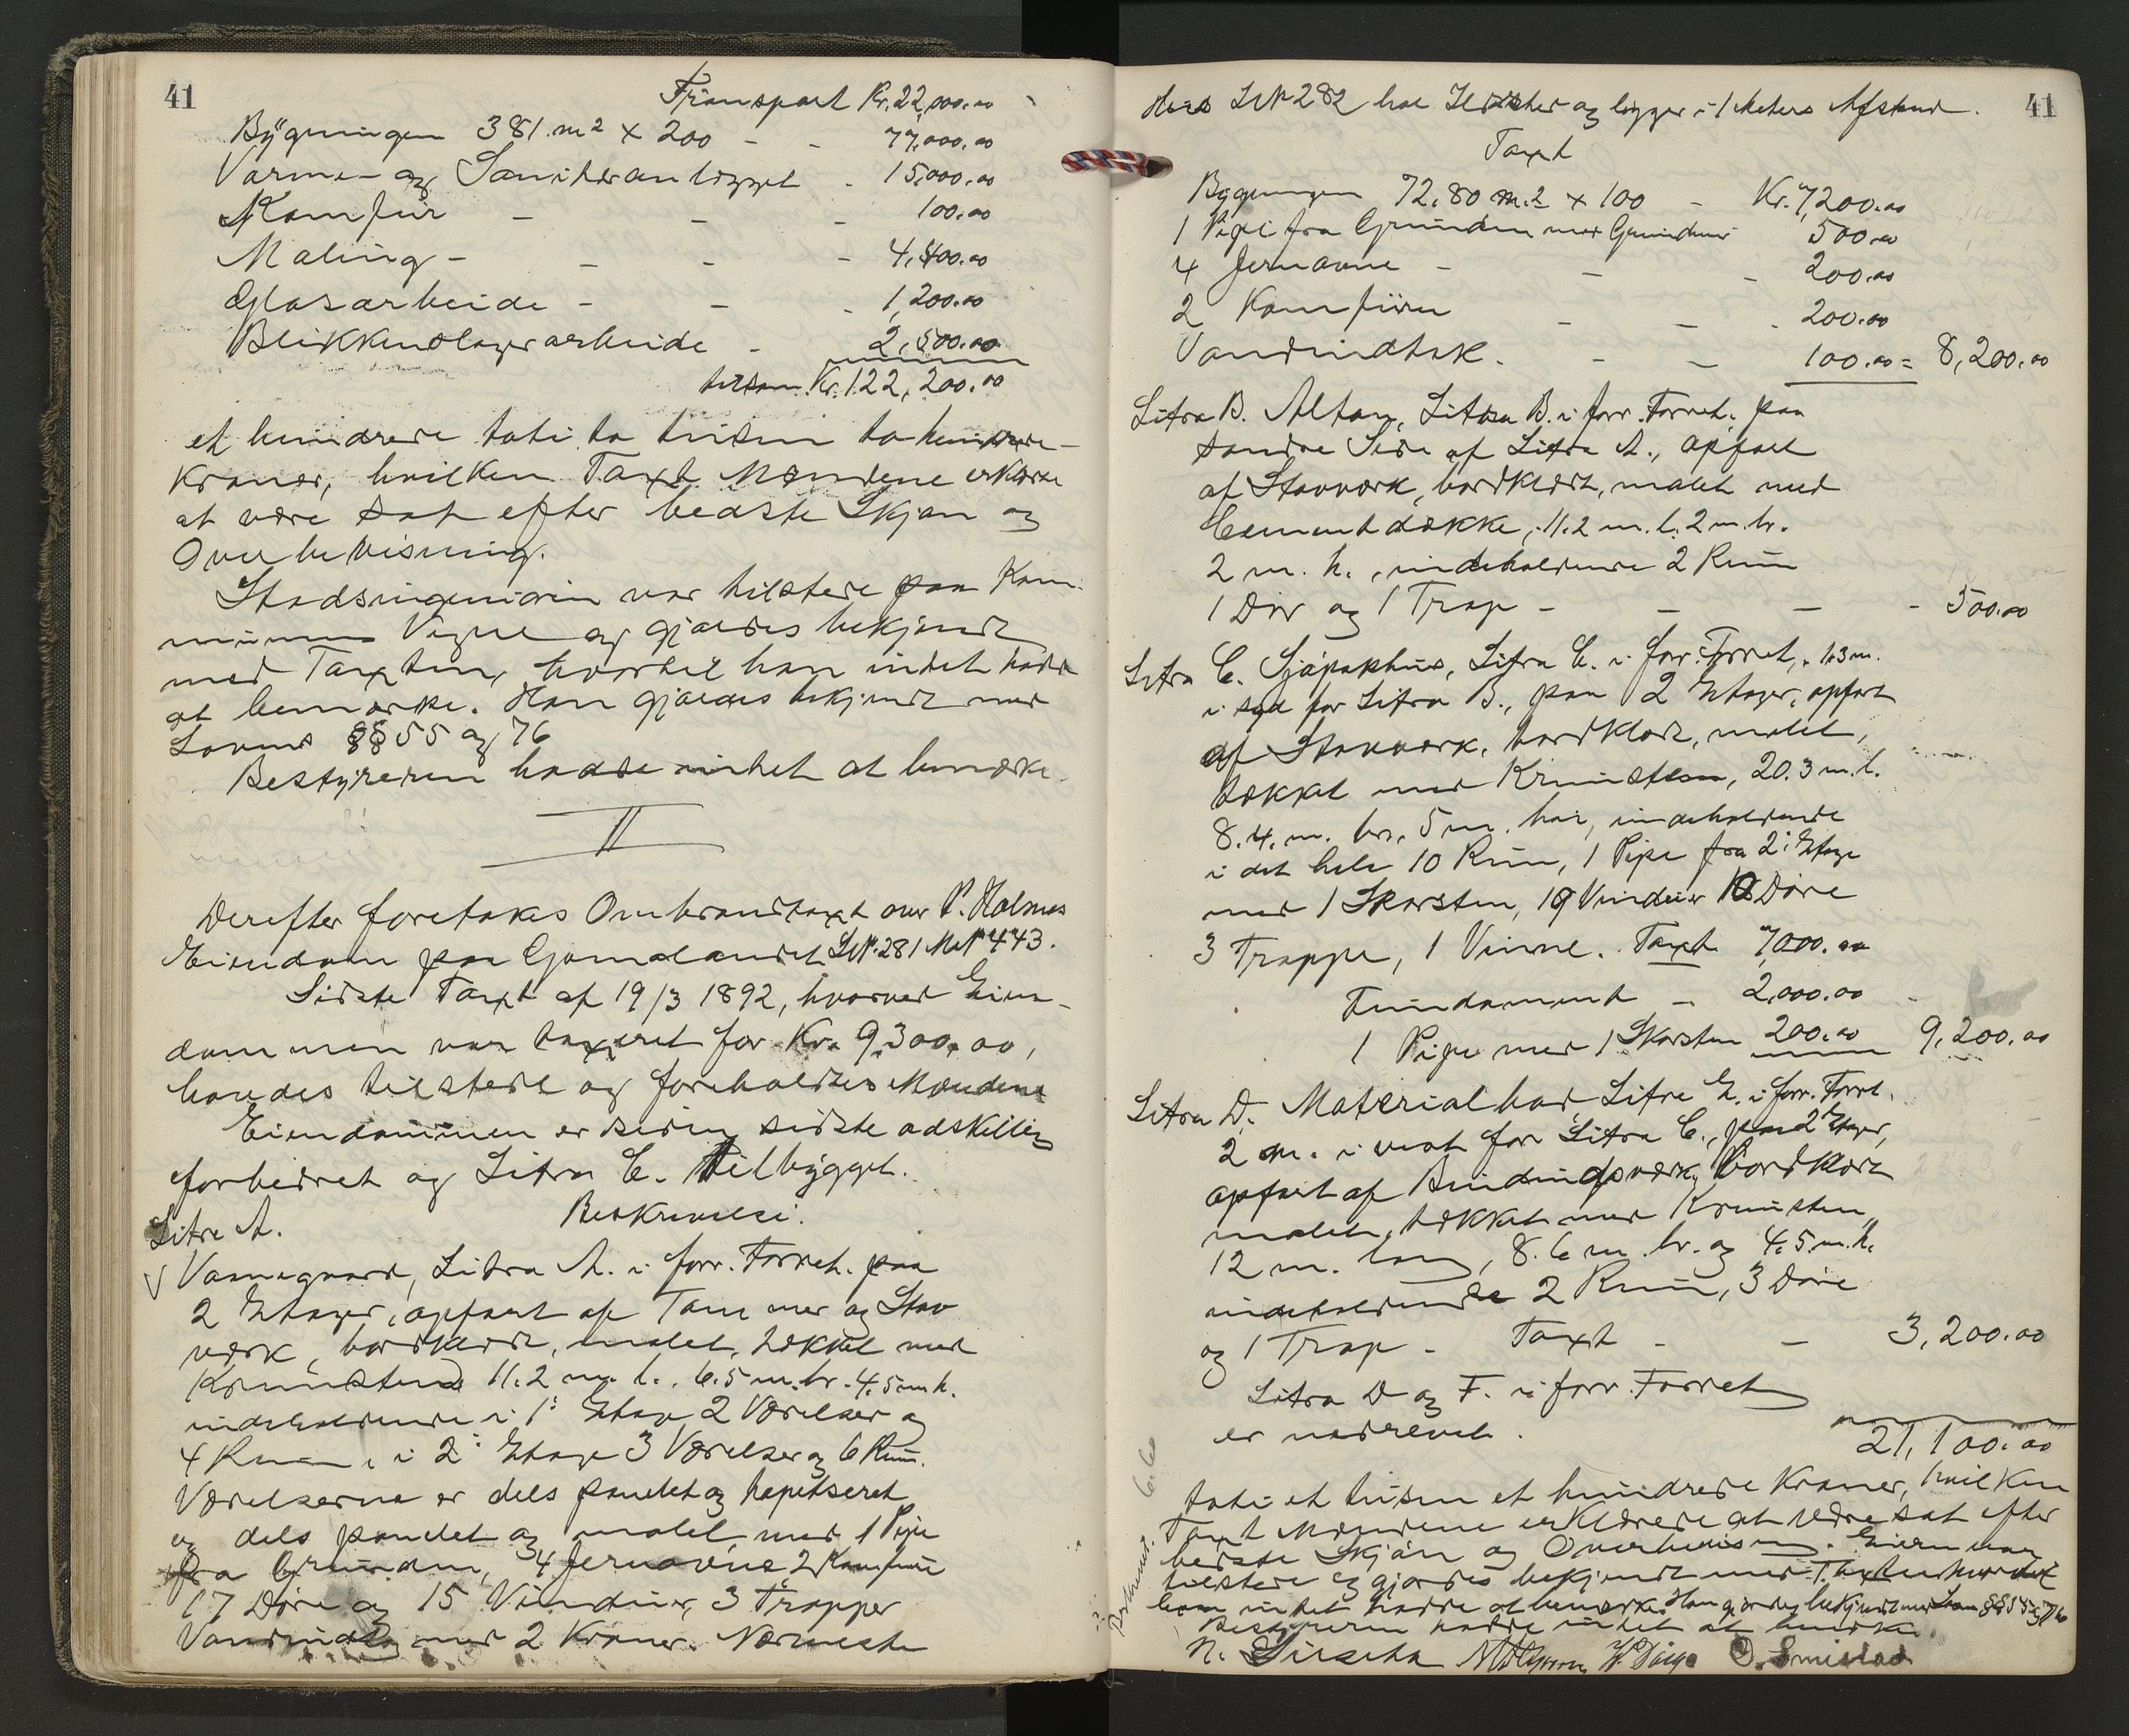 41
Transport Kr. 22,000.00
Bÿgningen 381. m² x 200 - - 77,000.00
Varme- og Sanitæranlegget - 15,000.00
Komfür - - - 100.00
Maling - - - - 4,400.00
Glasarbeide - - - 1,200.00
Blikkenslagerarbeide - 2,500.00
tilsam. Kr. 122,200.00
et hundrede toti to tusin to hundrede
Kroner, hvilken Taxt Mændene erklærte
at være sat efter bedste Skjøn og
Overbevisning.
Stadsingeniøren var tilstede paa Kom-
munens Vegne og gjordes bekjendt
med Taxten, hvortil han intet hadde
at bemærke. Han gjordes bekjendt med
Lovens §§ 55 og 76
Bestÿreren hadde intet at bemærke.
II
Derefter foretokes Ombrandtaxt over P. Holmes
Eiendom paa Gomalandet LN. 281 MN 443.
Sidste Taxt af 19/3 1892, hvorved Eien-
dommen var taxeret for Kr. 9,300,00,
havdes tilstede og foreholdtes Mændene
Eiendommen er siden sidste adskillig
forbedret og Litra C. tilbÿgget.
Beskrivelse.
Litra A.
Vaanegaard, Litra A. i forr. Forret. paa
2 Etager, opført af Tømmer og Stav
værk, bordklædt, malet, tækket med
Krumsten 11.2 m. l., 6.5 m. br. 4.5 m h.
indeholdende i 1: Etage 2 Værelser og
4 Rum, i 2: Etage 3 Værelser og 6 Rum.
Værelserne er dels panelet og tapetseret
og dels panelet og malet, med 1 Pipe
fra Grunden, 4 Jernovne, 2 Komfure
17 Døre og 15 Vinduer, 3 Trapper
Vandindtag med 2 Kraner. Nærmeste
41
Hus LN 282 har Ildsteder og ligger i 1 Meters Afstand.
Taxt
Bygningen 72.80 m.² x 100 - Kr. 7,200.00
1 Pipe fra Grunden med Grundmur 500.00
4 Jernovne - - - 200.00
2 Komfüre - - - 200.00
Vandindtak. - - 100.00 = 8,200.00
Litra B. Altan, Litra B. i forr. Forret. paa
søndre Side af Litra A., opført
af Stavværk, bordklædt, malet med
Cementdække, 11.2 m. l. 2 m. br.
2 m. h., indeholdende 2 Rum
1 Dør og 1 Trap - - - - 500.00
Litra C. Sjøpakhus, Litra C. i forr. Forret., 1.3 m.
i syd for Litra B., paa 2 Etager, opført
af Stavværk, bordklædt, malet,
tækket med Krumsten, 20.3 m. l.
8.4. m. br. 5 m. høi, indeholdende
i det hele 10 Rum, 1 Pipe fra 2: Etage
med 1 Skorsten, 19 Vinduer 12 Døre
3 Trapper, 1 Vinne. Taxt 7,000.00
Fundament - 2,000.00
1 Pipe med 1 Skorsten 200.00 9,200.00
Litra D. Materialbod, Litra E. i forr. Forret.
2 m. i vest for Litra C., paa 2 Etager,
opført af Bindingsværk, bordklædt
malet, tækket med Krumsten,
12 m. lang, 8.6 m. br. og 4.5 m. h.
indeholdende 2 Rum, 3 Døre
og 1 Trap - Taxt - - 3,200.00
Litra D og F. i forr. Forret
er nedrevet.
21,100.00
toti et tusen et hundrede Kroner, hvilken
Taxt Mændene erklærede at være sat efter
bedste Skjøn og Overbevisning. Eieren var
tilstede og gjordes bekjendt med Taxten hvortil
han intet hadde at bemærke. Han gjordes bekjendt med Lovens §§ 55 og 76
Bestyreren hadde intet at bemærke.
O. Smistad